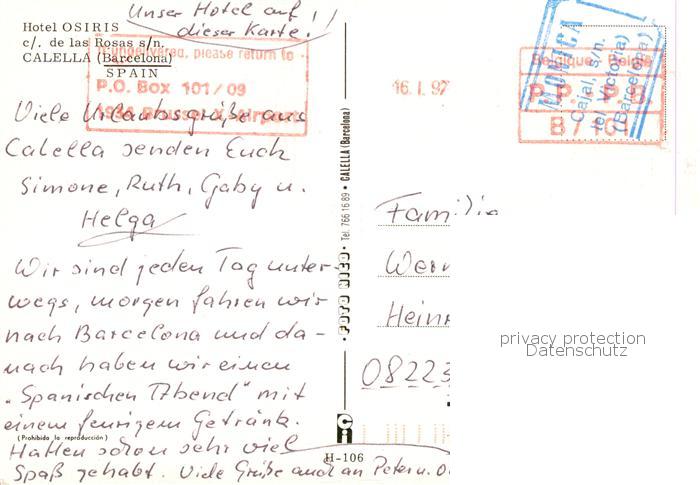 Unser Hotel auf
dieser Karte!
Hotel OSIRIS
c/. de las Rosas s/n.
CALELLA (Barcelona)
SPAIN
If undelivered, please return to
P.O. Box 101/09
Airport
Viele Urlaubsgrüße aus
Calella senden Euch
Simone, Ruth, Gaby u.
Helga
Wir sind jeden Tag unter-
wegs, morgen fahren wir
nach Barcelona und da-
nach haben wir einen
„Spanischen Abend" mit
einem feurigem Getränk.
(Prohibida la reproducción)
Hatten schon sehr viel
Spaß gehabt. Viele Grüße auch an Peter u.
FOTO RICO · Tel. 766 16 89 · CALELLA (Barcelona)
H-106
16.1.97
Belgique - België
P.P. P.B.
B/101
MONICA
Cajal, s/n.
tel Victoria)
(Barcelona)
Familie
Wern
Heinr
08223
privacy protection
Datenschutz